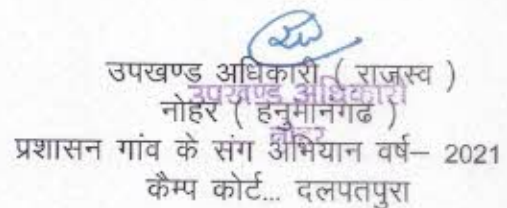 उपखण्ड अधिकारी ( राजस्व )
उपखण्ड अधिकारी
नोहर ( हनुमानगढ )
नोहर
प्रशासन गांव के संग अभियान वर्ष– 2021
कैम्प कोर्ट... दलपतपुरा